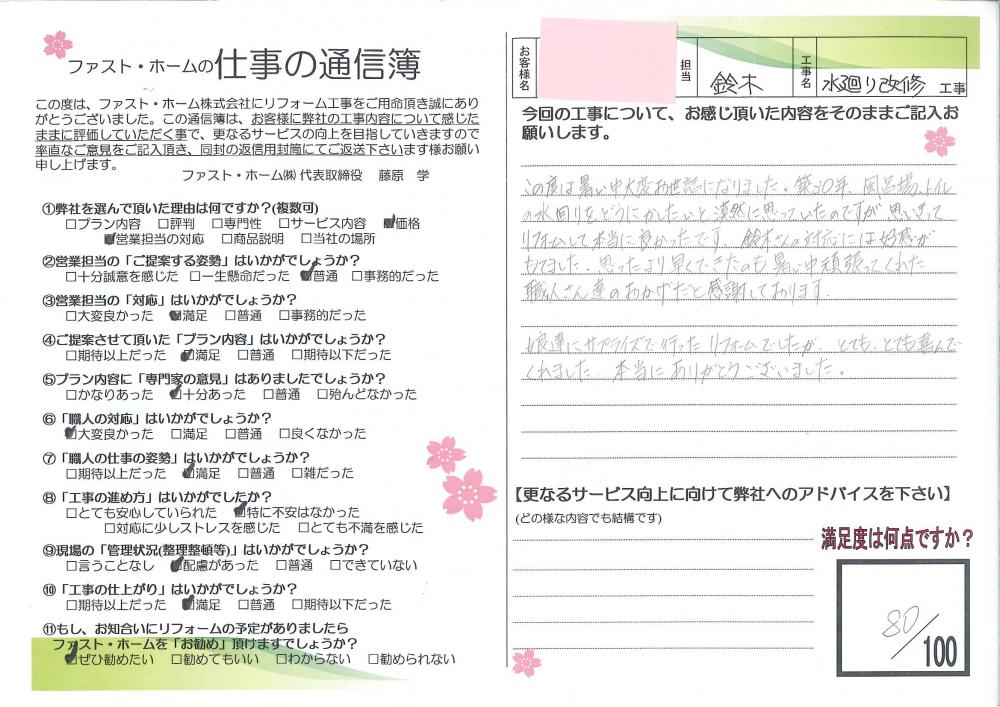 ファスト・ホームの仕事の通信簿
この度は、ファスト・ホーム株式会社にリフォーム工事をご用命頂き誠にあり
がとうございました。この通信簿は、お客様に弊社の工事内容について感じた
ままに評価していただく事で、更なるサービスの向上を目指していきますので
率直なご意見をご記入頂き、同封の返信用封筒にてご返送下さいます様お願い
申し上げます。
ファスト・ホーム㈱ 代表取締役 藤原 学
①弊社を選んで頂いた理由は何ですか?(複数可)
□プラン内容 □評判 □専門性 □サービス内容 ☑価格
☑営業担当の対応 □商品説明 □当社の場所
②営業担当の「ご提案する姿勢」はいかがでしょうか?
□十分誠意を感じた □一生懸命だった ☑普通 □事務的だった
③営業担当の「対応」はいかがでしょうか?
□大変良かった ☑満足 □普通 □事務的だった
④ご提案させて頂いた「プラン内容」はいかがでしょうか?
□期待以上だった ☑満足 □普通 □期待以下だった
⑤プラン内容に「専門家の意見」はありましたでしょうか?
□かなりあった ☑十分あった □普通 □殆んどなかった
⑥「職人の対応」はいかがでしょうか?
☑大変良かった □満足 □普通 □良くなかった
⑦「職人の仕事の姿勢」はいかがでしょうか?
□期待以上だった ☑満足 □普通 □雑だった
⑧「工事の進め方」はいかがでしたか?
□とても安心していられた ☑特に不安はなかった
□対応に少しストレスを感じた □とても不満を感じた
⑨現場の「管理状況(整理整頓等)」はいかがでしょうか?
□言うことなし ☑配慮があった □普通 □できていない
⑩「工事の仕上がり」はいかがでしょうか?
□期待以上だった ☑満足 □普通 □期待以下だった
⑪もし、お知合いにリフォームの予定がありましたら
ファスト・ホームを「お勧め」頂けますでしょうか?
☑ぜひ勧めたい □勧めてもいい □わからない □勧められない
お客様名 担当 鈴木 工事名 水廻り改修 工事
今回の工事について、お感じ頂いた内容をそのままご記入お
願いします。
この度は暑い中大変お世話になりました。築20年、風呂場、トイレ
の水回りをどうにかしたいと漠然に思っていたのですが思いきって
リフォームして本当に良かったです。鈴木さんの対応には好感が
もてました。思ったより早くできたのも暑い中頑張ってくれた
職人さん達のおかげだと感謝しております。
娘達にサプライズで行ったリフォームでしたが、とても、とても喜んで
くれました。本当にありがとうございました。
【更なるサービス向上に向けて弊社へのアドバイスを下さい】
(どの様な内容でも結構です)
満足度は何点ですか?
80/100